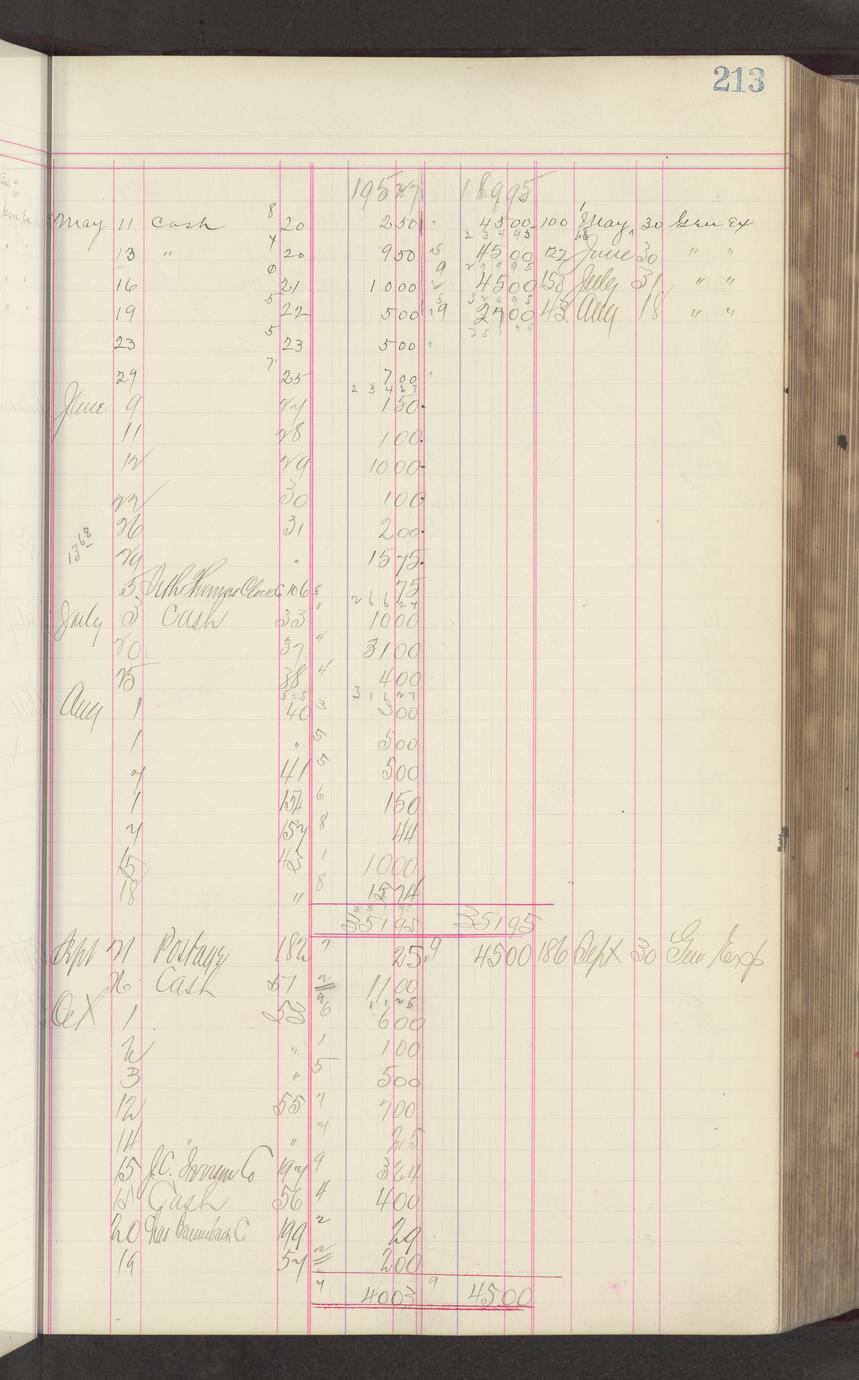 213
195 27 189 95
May 11 Cash 8 20 2 50 45 00 100 May 30 Gen Ex
2 3 4 9 5
13 " 4 20 9 50 45 00 127 June 30 " "
2 7 9 9 5
16 0 21 10 00 9 45 00 158 July 31 " "
3 2 4 9 5
19 5 22 5 00 9 27 00 43 Aug 18 " "
3 5 1 9 5
23 5 23 5 00
29 7 25 7 00
2 3 4 2 7
June 9 27 1 50
11 28 1 00
12 29 10 00
22 30 1 00
26 31 2 00
13 68
29 " 15 75
5 Seth Thomas Clock Co 106 5 75
2 6 6 2 7
July 3 Cash 33 10 00
20 37 4 31 00
25 38 4 4 00
3 1 6 2 7
Aug 1 40 3 3 00
1 " 5 5 00
4 41 5 5 00
1 154 6 1 50
4 157 8 44
15 43 1 10 00
18 " 8 15 74
351 95 351 95
Sept 21 Postage 182 7 25 9 45 00 186 Sept 30 Gen Exp
26 Cash 51 2 11 00
1 1 2 5
Oct 1 53 6 6 00
2 " 1 1 00
3 " 5 5 00
12 55 7 7 00
14 " 7 25
15 J.C. Co 197 9 3 24
15 Cash 56 4 4 00
20 Chas Baumbach Co 199 2 29
19 57 2 2 00
4 40 03 9 45 00